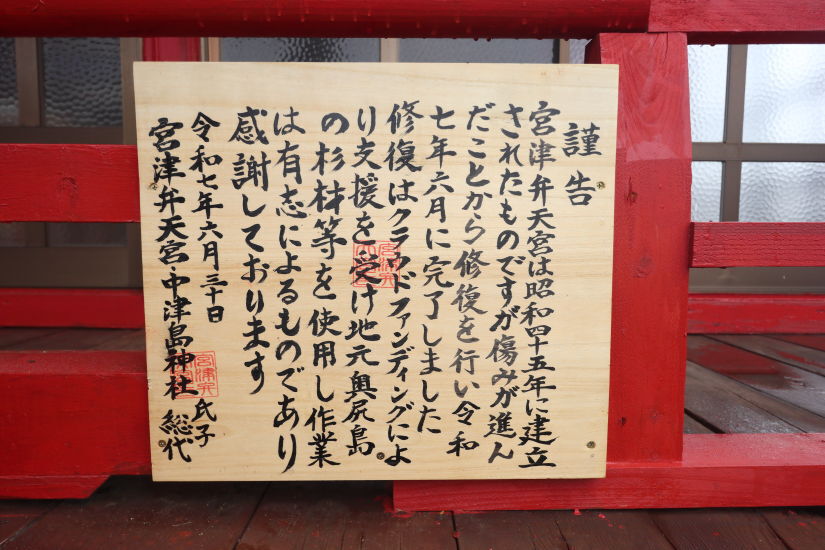 謹告
宮津弁天宮は昭和四十五年に建立
されたものですが傷みが進ん
だことから修復を行い令和
七年六月に完了しました
修復はクラウドファンディングによ
り支援を受け地元奥尻島
の杉材等を使用し作業
は有志によるものであり
感謝しております
令和七年六月三十日
宮津弁天宮・中津島神社 氏子
総代